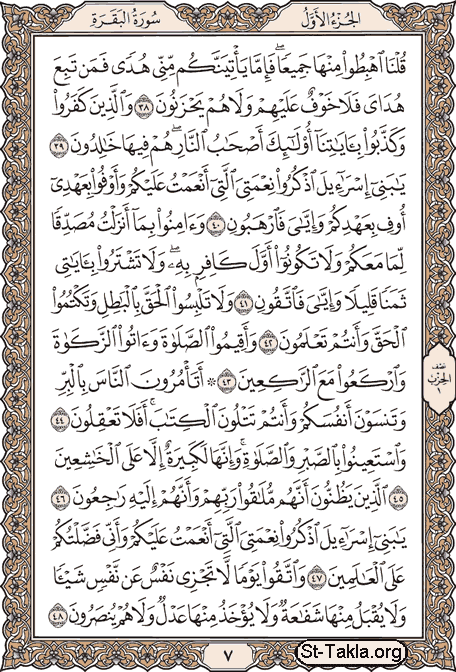 الجزء الأول
سورة البقرة
قُلْنَا ٱهْبِطُوا۟ مِنْهَا جَمِيعًا ۖ فَإِمَّا يَأْتِيَنَّكُم مِّنِّى هُدًى فَمَن تَبِعَ
هُدَاىَ فَلَا خَوْفٌ عَلَيْهِمْ وَلَا هُمْ يَحْزَنُونَ ٣٨ وَٱلَّذِينَ كَفَرُوا۟
وَكَذَّبُوا۟ بِـَٔايَـٰتِنَآ أُو۟لَـٰٓئِكَ أَصْحَـٰبُ ٱلنَّارِ ۖ هُمْ فِيهَا خَـٰلِدُونَ ٣٩
يَـٰبَنِىٓ إِسْرَٰٓءِيلَ ٱذْكُرُوا۟ نِعْمَتِىَ ٱلَّتِىٓ أَنْعَمْتُ عَلَيْكُمْ وَأَوْفُوا۟ بِعَهْدِىٓ
أُوفِ بِعَهْدِكُمْ وَإِيَّـٰىَ فَٱرْهَبُونِ ٤٠ وَءَامِنُوا۟ بِمَآ أَنزَلْتُ مُصَدِّقًا
لِّمَا مَعَكُمْ وَلَا تَكُونُوٓا۟ أَوَّلَ كَافِرٍۭ بِهِۦ ۖ وَلَا تَشْتَرُوا۟ بِـَٔايَـٰتِى
ثَمَنًا قَلِيلًا وَإِيَّـٰىَ فَٱتَّقُونِ ٤١ وَلَا تَلْبِسُوا۟ ٱلْحَقَّ بِٱلْبَـٰطِلِ وَتَكْتُمُوا۟
ٱلْحَقَّ وَأَنتُمْ تَعْلَمُونَ ٤٢ وَأَقِيمُوا۟ ٱلصَّلَوٰةَ وَءَاتُوا۟ ٱلزَّكَوٰةَ
وَٱرْكَعُوا۟ مَعَ ٱلرَّٰكِعِينَ ٤٣ ۞ أَتَأْمُرُونَ ٱلنَّاسَ بِٱلْبِرِّ
وَتَنسَوْنَ أَنفُسَكُمْ وَأَنتُمْ تَتْلُونَ ٱلْكِتَـٰبَ ۚ أَفَلَا تَعْقِلُونَ ٤٤
وَٱسْتَعِينُوا۟ بِٱلصَّبْرِ وَٱلصَّلَوٰةِ ۚ وَإِنَّهَا لَكَبِيرَةٌ إِلَّا عَلَى ٱلْخَـٰشِعِينَ
٤٥ ٱلَّذِينَ يَظُنُّونَ أَنَّهُم مُّلَـٰقُوا۟ رَبِّهِمْ وَأَنَّهُمْ إِلَيْهِ رَٰجِعُونَ ٤٦
يَـٰبَنِىٓ إِسْرَٰٓءِيلَ ٱذْكُرُوا۟ نِعْمَتِىَ ٱلَّتِىٓ أَنْعَمْتُ عَلَيْكُمْ وَأَنِّى فَضَّلْتُكُمْ
عَلَى ٱلْعَـٰلَمِينَ ٤٧ وَٱتَّقُوا۟ يَوْمًا لَّا تَجْزِى نَفْسٌ عَن نَّفْسٍ شَيْـًٔا
وَلَا يُقْبَلُ مِنْهَا شَفَـٰعَةٌ وَلَا يُؤْخَذُ مِنْهَا عَدْلٌ وَلَا هُمْ يُنصَرُونَ ٤٨
نصف
الحزب
١
٧
St-Takla.org